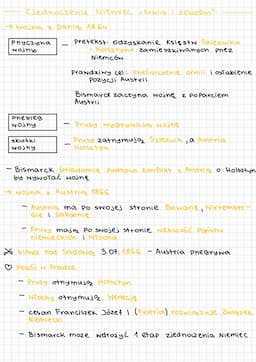 Zjednoczenie Niemiec „krwią i żelazem"
→ wojna z Danią 1864
przyczyna
wojny
— Pretekst: odzyskanie Księstw Szlezwiku
i Holsztynu zamieszkiwanych przez
Niemców
Prawdziwy cel: zwiększenie armii i osłabienie
pozycji Austrii
Bismarck zaczyna wojnę z poparciem
Austrii
przebieg
wojny
— Prusy wygrywają wojnę
skutki
wojny
— Prusy zatrzymują Szlezwik, a Austria
Holsztyn
— Bismarck świadomie podsyca konflikt z Austrią o Holsztyn
by wywołać wojnę
→ wojna z Austrią 1866
— Austria ma po swojej stronie Bawarię, Wirtember-
gię i Saksonię
— Prusy mają po swojej stronie większość państw
niemieckich i Włochy
bitwa pod Sadową 3.07.1866 - Austria przegrywa
Pokój w Pradze
— Prusy otrzymują Holsztyn
— Włochy otrzymują Wenecję
— cesarz Franciszek Józef I (Austria) rozwiązuje Związek
Niemiecki
— Bismarck może wdrożyć 1 etap zjednoczenia Niemiec